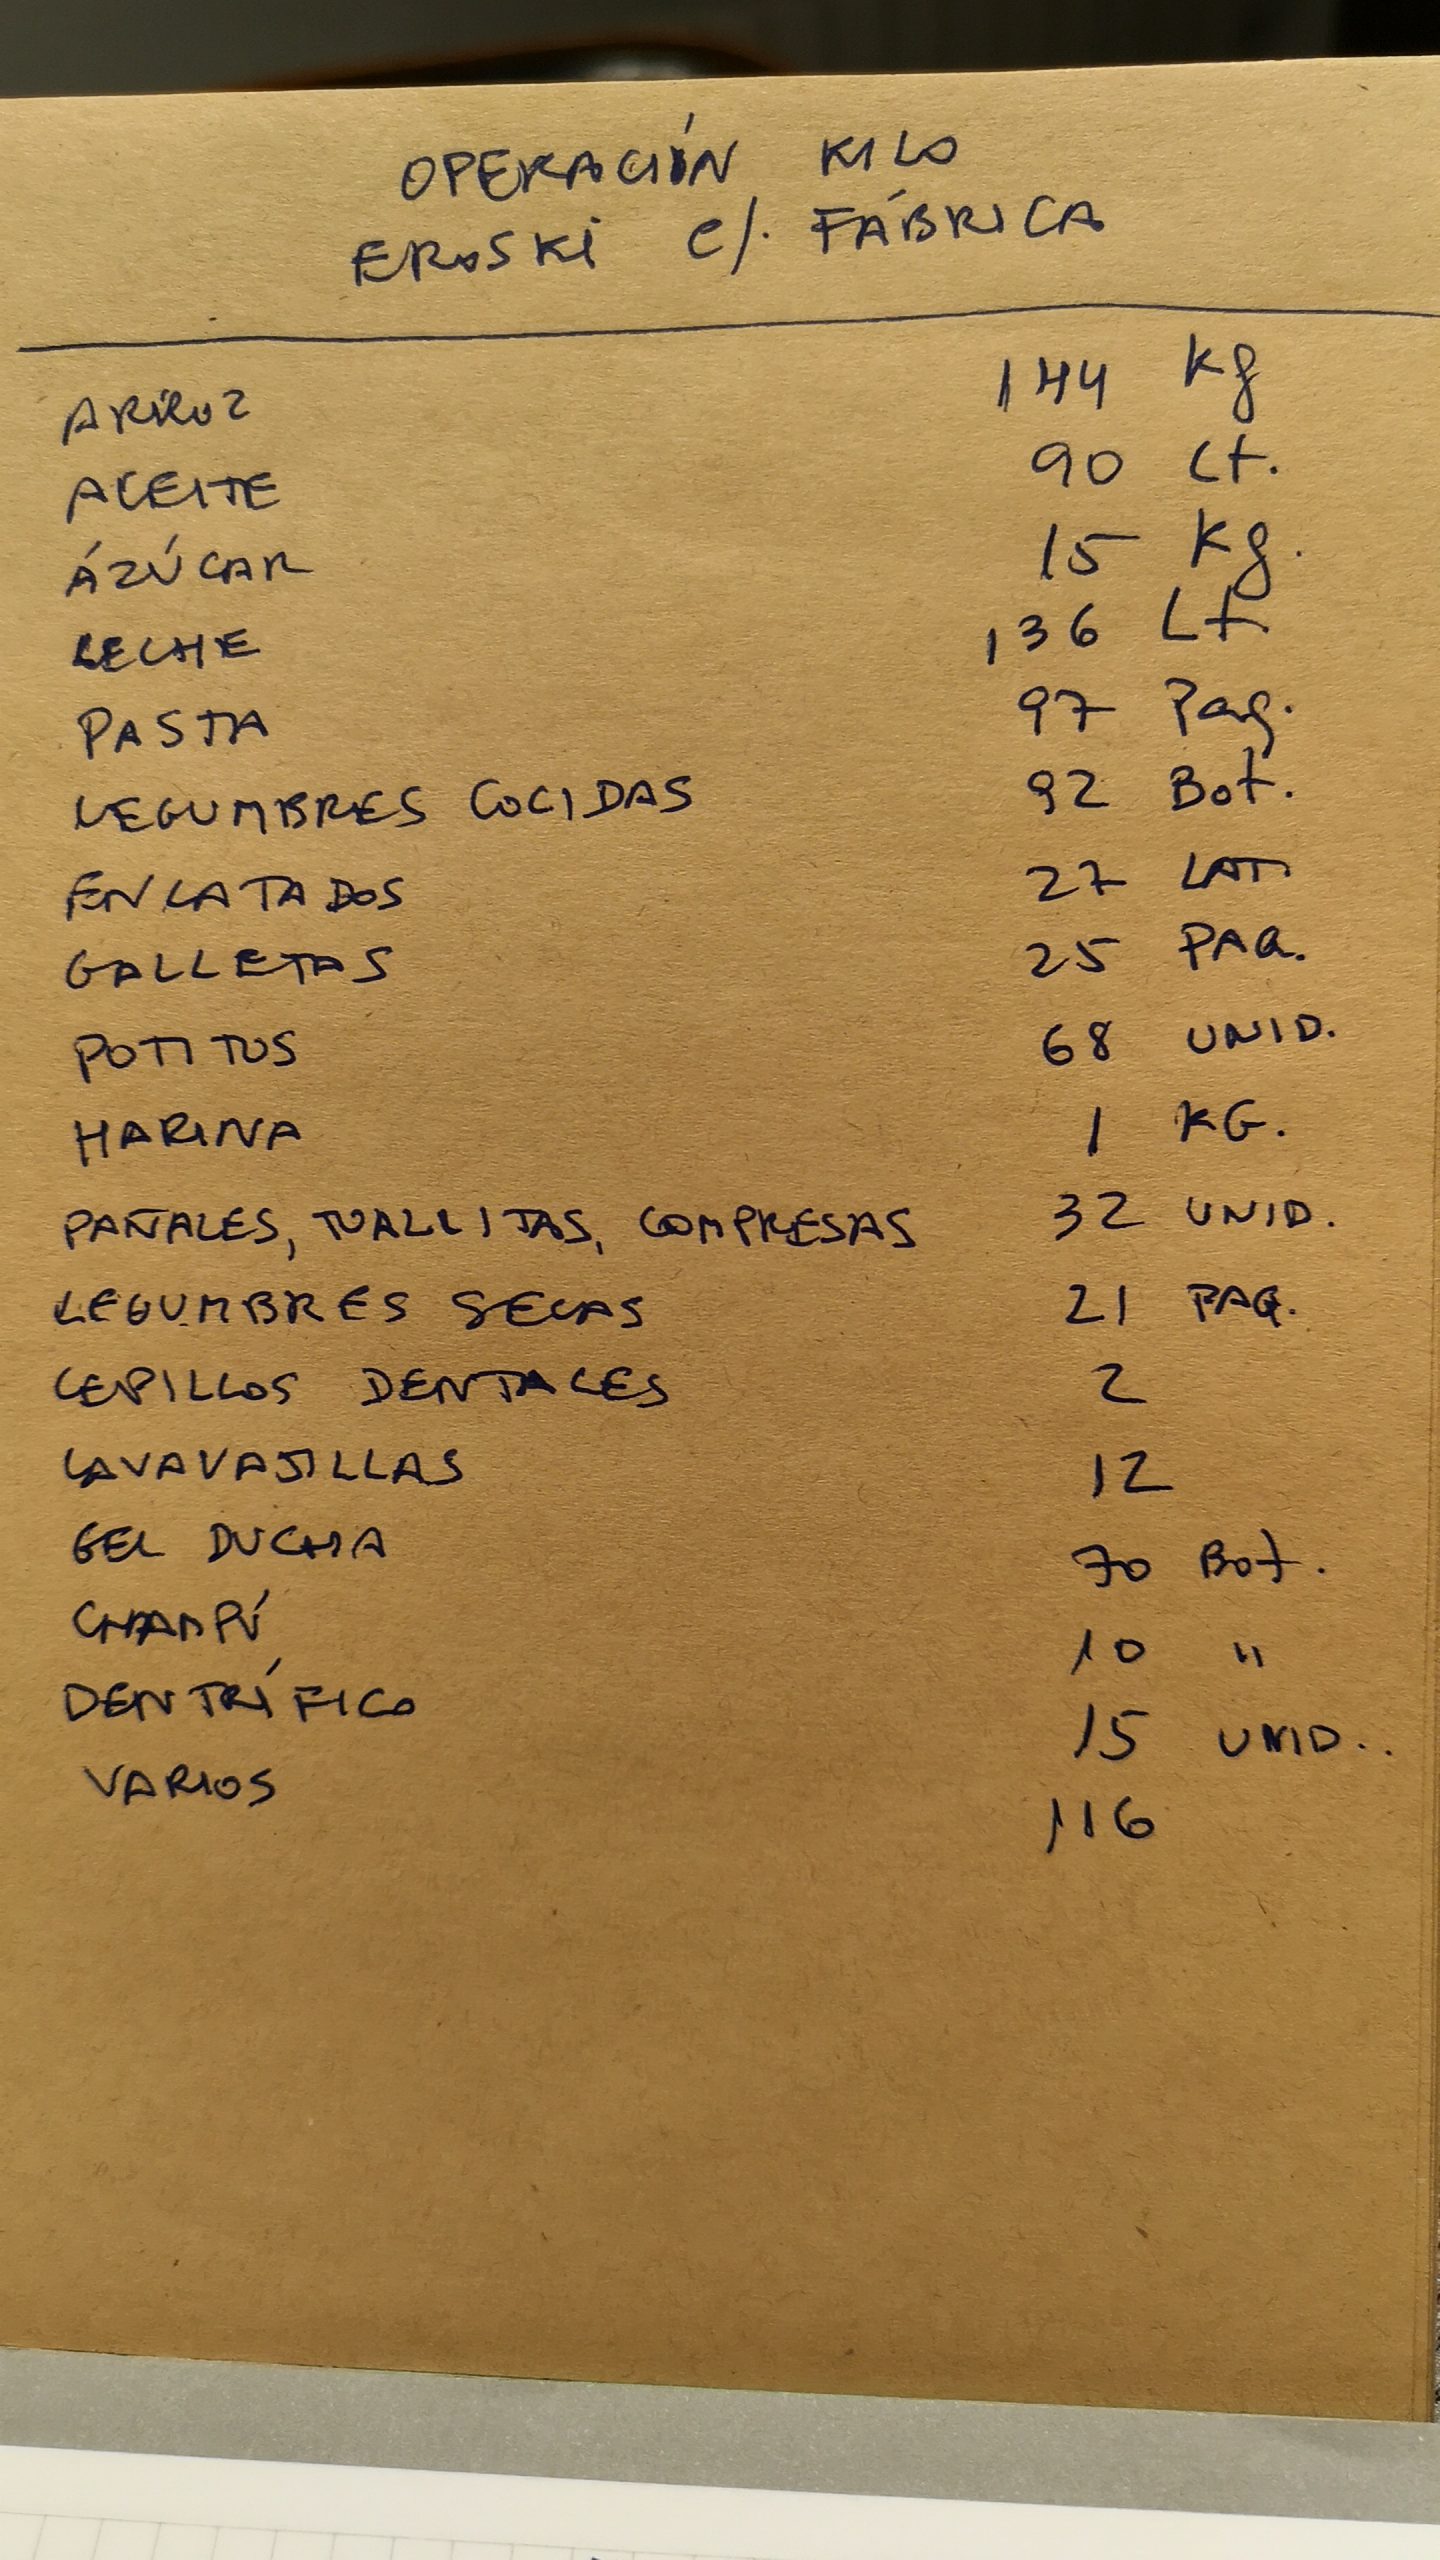 OPERACIÓN KILO
EROSKI C/. FÁBRICA
ARROZ 144 Kg
ACEITE 90 Lt.
ÁZÚCAR 15 Kg.
LECHE 136 Lt.
PASTA 97 Paq.
LEGUMBRES COCIDAS 92 Bot.
ENLATADOS 27 LAT
GALLETAS 25 PAQ.
POTITOS 68 UNID.
HARINA 1 KG.
PAÑALES, TOALLITAS, COMPRESAS 32 UNID.
LEGUMBRES SECAS 21 PAQ.
CEPILLOS DENTALES 2
LAVAVAJILLAS 12
GEL DUCHA 70 Bot.
CHAMPÚ 10 "
DENTRÍFICO 15 UNID..
VARIOS 116